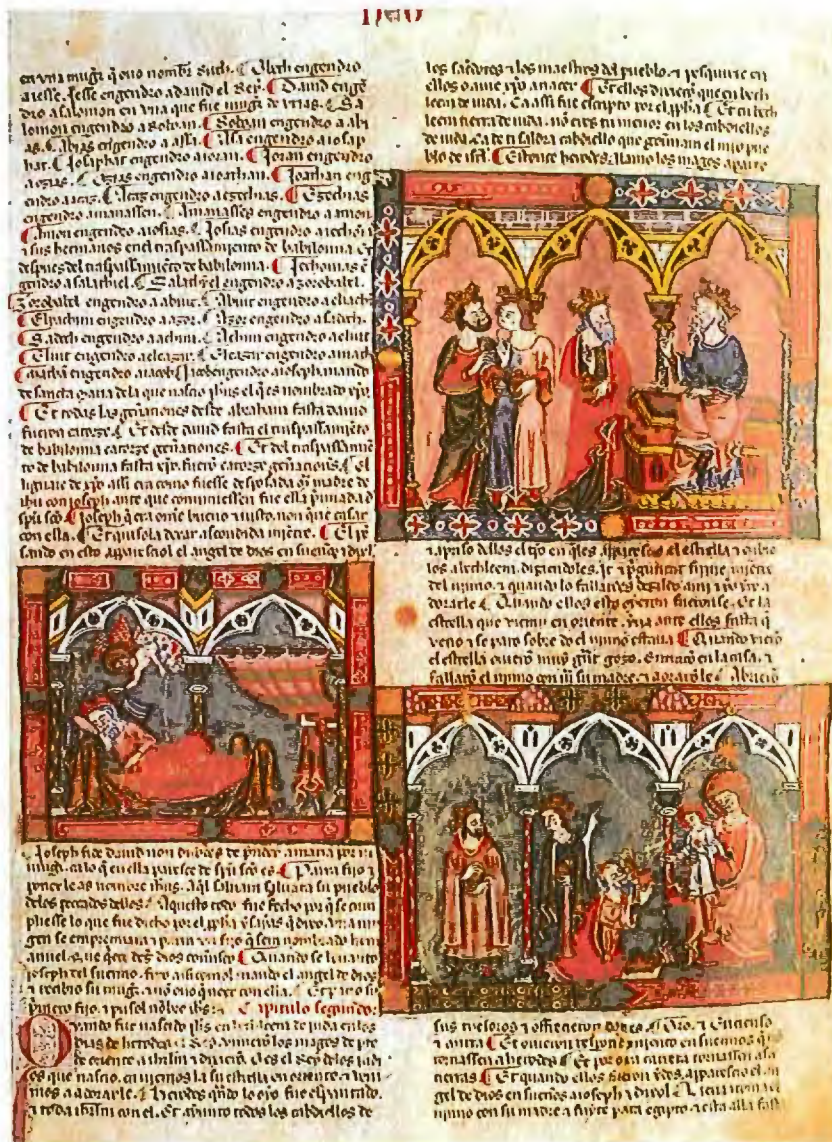 en vna mugr q̃ ouo nombr̃ Ruth. Obeth engendro
a iesse. Jesse engendro a dauid el Rey. Dauid engẽ
dro a salomon en vna que fue mugr̃ de vrias. Sa
lomon engendro a Roboan. Roboan engendro a abi
as. Abias engendro a assa. Assa engendro a iosap
hat. Josaphat engendro a ioran. Joran engendro
a ozias. Ozias engendro a ioathan. Joathan eng
endro a acaz. Acaz engendro a ezechias. Ezechias
engendro a manassen. Manasses engendro a amon
Amon engendro a iosias. Josias engendro a iechoni
τ sus hermanos en el traspassamiento de babilonna. Et
despues del traspassamiẽto de babilonna. Jechonias ẽ
gendro a salathiel. Salathyel engendro a zorobabel.
Zorobabel engendro a abiut. Abiut engendro a eliach
Elyachim engendro a azor. Azor engendro a sadoch.
Sadoch engendro a achim. Achim engendro a eliut
Eliut engendro a eleazar. Eleazar engendro a math
engendro a iacob. Jacob engendro a ioseph marido
de sancta Maria de la que nascio ihus el q̃ es nombrado xp̃o
Et todas las gẽnationes desde abraham fasta dauid
fueron catorze. Et desde dauid fasta el traspassamiẽto
de babilonna catorze gẽnationes. Et del traspassamiẽ
to de babilonna fasta xp̃o. fuerõ catorze gẽnationes. El
linage de xp̃o assi era como fuesse desposada madre de
ihu con joseph ante que conuiniessen fue ella prennada d
spũ scõ. Joseph q̃ era omẽ bueno τ iusto. non que
con ella. Et quisola dexar ascondida miẽtre. El pẽ
sando en esto appareciol el angel de dios en suenos τ dixol
Joseph fijo de dauid non dubdes de prender a maria por tu
mugr̃. ca lo q̃ en ella paresce de spũ scõ es. Parra fijo τ
ponerle as nombre ihus. Aq̃l saluara su pueblo
delos peccados dellos. Aquesto todo fue fecho por q̃ se cum
pliesse lo que fue dicho por el ppha ysayas q̃ dixo. vna uir
gen se emprennara τ parra vn fijo q̃ sera nombrado hem
anuel. que q̃ere dezir dios connusco. Quando se leuanto
joseph del suenno. fizo assi como mando el angel de dios
τ recibio su mugr̃. τ nõ ouo q̃ ueer con ella. Et pario su
primero fijo. τ pusol nõbre ihs. Capitulo segundo.
Quando fue nascido ihs en bethleem de iuda en los
dias de herodes el Rey. vinieron los magos de pte
de oriente a ihrlm τ dixierõ. O es el Rey delos iudi
os que nascio. ca uiemos la su estrella en oriente. τ ueni
mos a adorarle. Herodes qñdo lo oyo fue espantado.
τ toda ihrlm con el. Et ayunto todos los cabdiellos de
los sacerdotes τ los maestros del pueblo. τ pesquirie en
ellos o aurie xp̃o a nacer. Et ellos dixierõ que en beth
leem de iuda. Ca assi fue escripto por el ppha. Et tu beth
leem tierra de iuda. nõ eres tu menor en los cabdiellos
de iuda. Ca de ti saldra cabdiello que gouierne el mio pue
blo de isrl. Estonce herodes. llamo los magos aparte
τ apriso dellos el tpo en q̃ les apparescio el estrella τ enbio
los a bethleem. diziendoles. Jt τ pguntat firme miẽtre
del ninno. τ quando lo fallardes dezilo ami τ yo yre a
dorarle. Quando ellos esto oyeron fueronse. Et la
estrella que vieran en oriente. yua ante ellos fasta q̃
veno τ se paro sobre do el ninno estaua. Quando vierõ
el estrella ouierõ muy grãt gozo. Entrarõ en la casa. τ
fallarõ el ninno con mª su madre. τ adorarõle. Abrierõ
sus thesoros τ offrecieron dones. Oro. τ Encienso
τ mirra. Et ouieron respondimiento en suennos q̃ nõ
tornassen a herodes. Et por otra carrera tornassen a sus
tierras. Et quando ellos fueron ydos. apparescio el an
gel de dios en suenos a ioseph τ dixol. Lieua tu el
ninno con su madre τ fuyte para egipto. τ esta alla fast